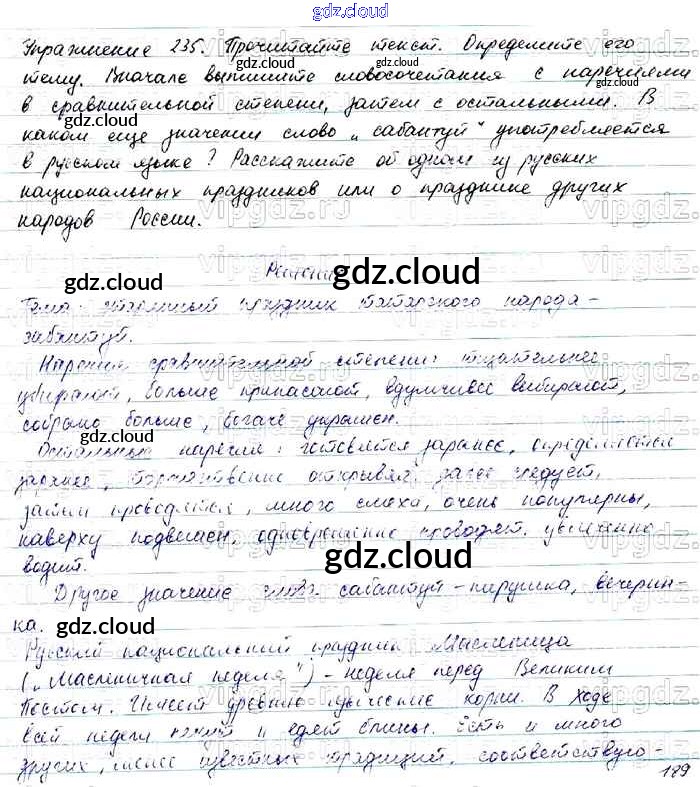 gdz.cloud
Упражнение 235. Прочитайте текст. Определите его
тему. Вначале выпишите словосочетания с наречиями
в сравнительной степени, затем с остальными. В
каком еще значении слово „сабантуй" употребляется
в русском языке? Расскажите об одном из русских
национальных праздников или о празднике других
народов России.
Решение
Тема: старинный праздник татарского народа -
сабантуй.
Наречия сравнительной степени: тщательнее
убирают, больше припасают, вдумчивее выбирают,
собрано больше, богаче украшен.
Остальные наречия: готовятся заранее, определяется
заранее, торжественно открывая, далее следует,
затем проводятся, много смеха, очень популярны,
наверху подвешен, одновременно проводят,
водит.
Другое значение слова сабантуй - пирушка, вечерин-
ка.
Русский национальный праздник Масленица
(„Масленичная неделя") - неделя перед Великим
Постом. Имеет древние языческие корни. В ходе
всей недели пекут и едят блины. Есть и много
других, менее известных традиций, соответствую-
189